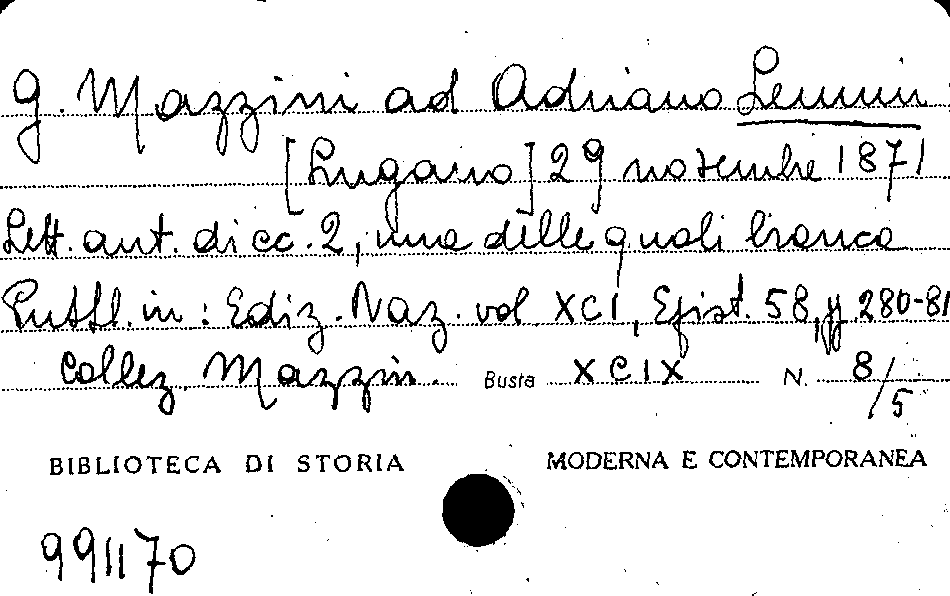 G. Mazzini ad Adriano Lemmi
[Lugano] 29 novembre 1871
Lett. aut. di cc. 2, una delle quali bianca
Pubbl. in: Ediz. Naz. vol. XCI, Epist. 58, pp. 280-81
Collez. Mazzini. Busta XCIX N. 8/5
BIBLIOTECA DI STORIA MODERNA E CONTEMPORANEA
991170